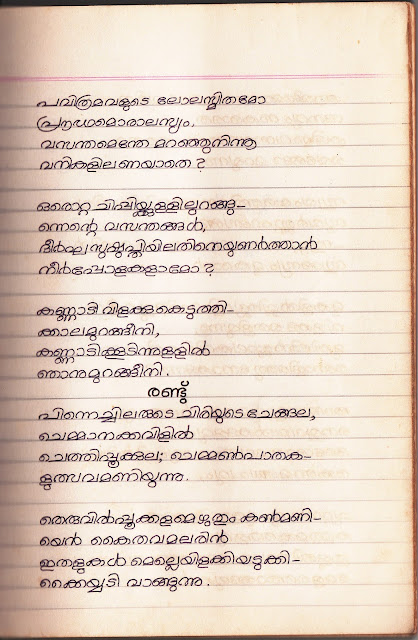 പവിത്രമവളുടെ ലോലസ്മിതമോ
പ്രൗഢമൊരാലസ്യം,
വസന്തമെന്തേ മറഞ്ഞുനിന്നൂ
വനികളിലണയാതെ ?
ഒരൊറ്റ ചിപ്പിയ്ക്കുള്ളിലുറങ്ങു-
ന്നെന്റെ വസന്തങ്ങൾ,
ദീർഘസുഷുപ്തിയിലതിനെയുണർത്താൻ
നീർപ്പോളകളാമോ ?
കണ്ണാടി വിളക്കുകെടുത്തി-
ക്കാലമുറങ്ങീനി,
കണ്ണാടിക്കൂടിന്നുള്ളിൽ
ഞാനുമുറങ്ങീനി.
രണ്ട്
പിന്നെച്ചിലരുടെ ചിരിയുടെ ചേങ്ങല,
ചെമ്മാനക്കവിളിൽ
ചെത്തിപ്പൂക്കുല; ചെമ്മൺപാതക-
ളുത്സവമണിയുന്നു.
തെരുവിൽപ്പൂക്കളുമെഴുതും കൺമണി-
യെൻ കൈതവമലരിൻ
ഇതളുകൾ മെല്ലെയിളക്കിയടുക്കി-
ക്കൈയ്യടി വാങ്ങുന്നു.